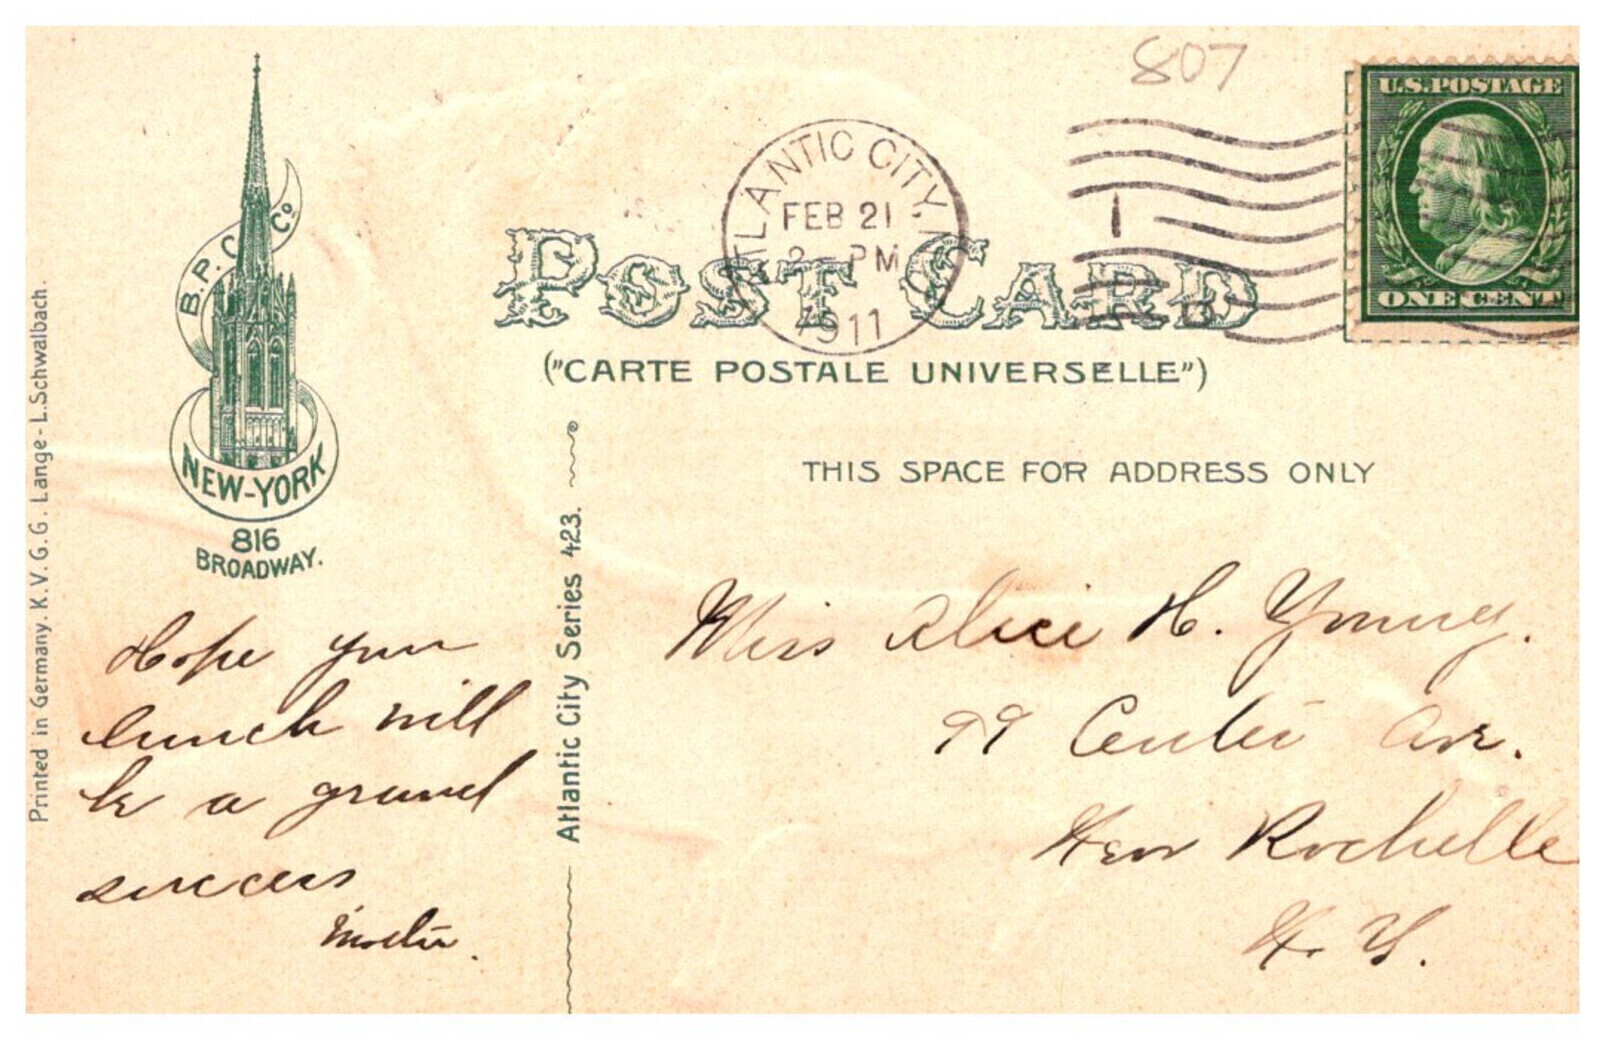 807
U.S. POSTAGE
ONE CENT
ATLANTIC CITY, N.J.
FEB 21
2 - PM
1911
1
B.P.C. Co.
NEW-YORK
816
BROADWAY.
POST CARD
("CARTE POSTALE UNIVERSELLE")
THIS SPACE FOR ADDRESS ONLY
Printed in Germany. K. V. G. G. Lange - L. Schwalbach.
Atlantic City Series 423.
Hope your
lunch will
be a grand
success
Mother.
Miss Alice H. Young.
99 Center Ave.
New Rochelle
N. Y.